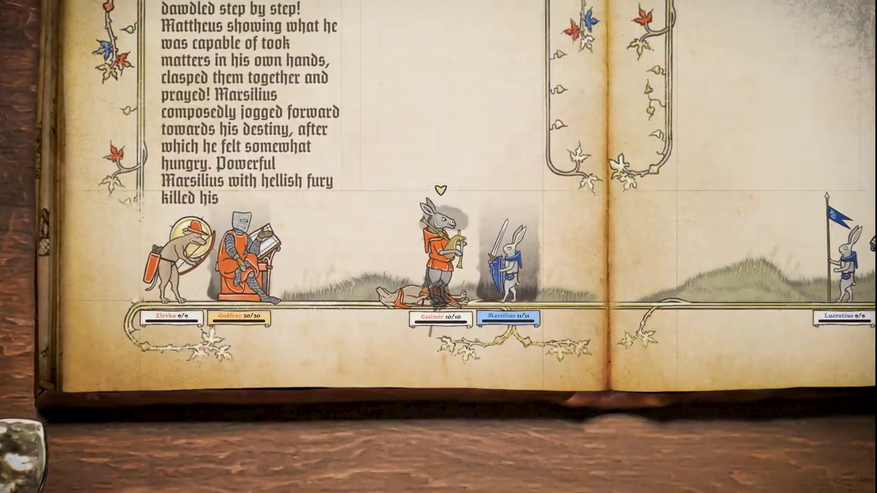 dawdled step by step!
Mattheus showing what he
was capable of took
matters in his own hands,
clasped them together and
prayed! Marsilius
composedly jogged forward
towards his destiny, after
which he felt somewhat
hungry. Powerful
Marsilius with hellish fury
killed his
Zlevka 9/9
Godfrey 20/20
Casimir 10/10
Marsilius 11/11
Lucretius 8/8